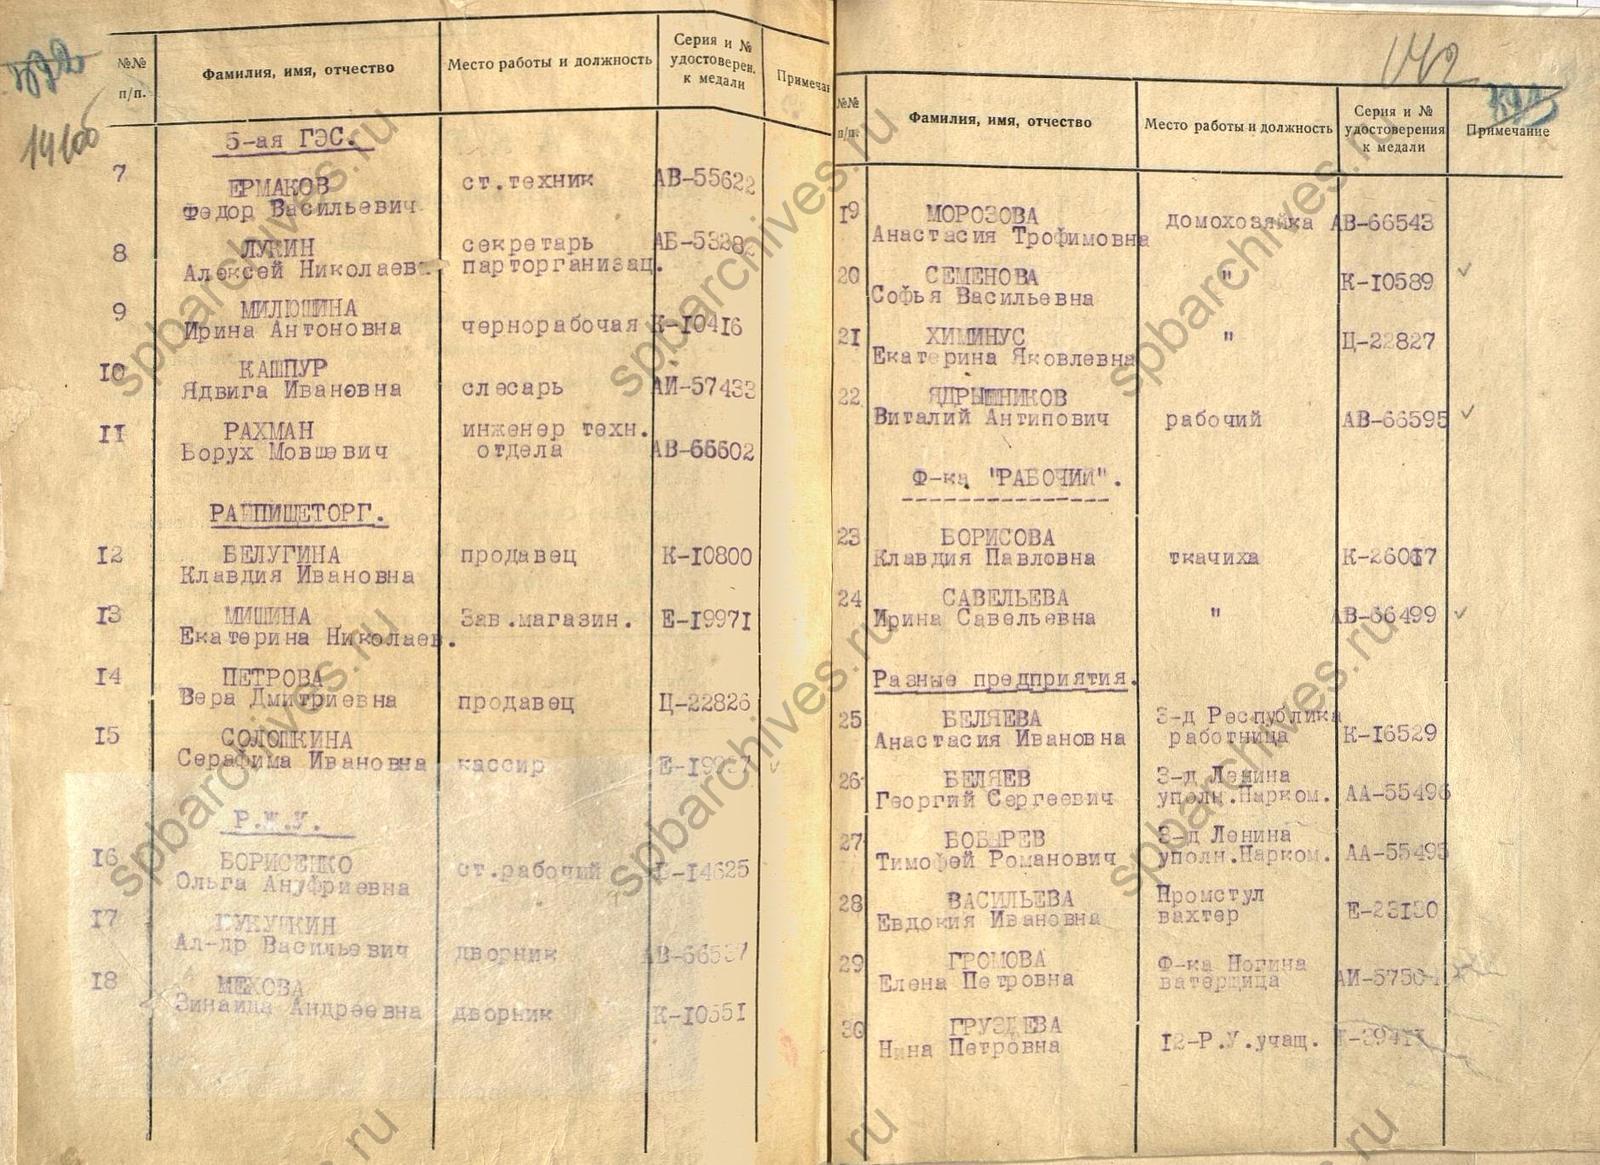 №№ п/п.
Фамилия, имя, отчество
Место работы и должность
Серия и № удостоверен. к медали
Примеча
14100
5-ая ГЭС.
7 ЕРМАКОВ ст.техник АВ-55622
Федор Васильевич
8 ЛУКИН секретарь АБ-53282
Алексей Николаев парторганизац.
9 МИЛЮШИНА
Ирина Антоновна чернорабочая К-10416
10 КАШПУР
Ядвига Ивановна слесарь АИ-57433
11 РАХМАН инженер техн.
Борух Мовшевич отдела АВ-66602
РАЙПИЩЕТОРГ.
12 БЕЛУГИНА продавец К-10800
Клавдия Ивановна
13 МИШИНА Зав.магазин. Е-19971
Екатерина Николаев.
14 ПЕТРОВА
Вера Дмитриевна продавец Ц-22826
15 СОЛОШКИНА
Серафима Ивановна кассир
Р.Ж.У.
16 БОРИСЕНКО ст.рабочий
Ольга Ануфриевна
17 КУКУШКИН
Ал-др Васильевич дворник
18 МЕХОВА
Зинаида Андреевна дворник К-10551
142
№№ п/п.
Фамилия, имя, отчество
Место работы и должность
Серия и № удостоверения к медали
Примечание
19 МОРОЗОВА домохозяйка АВ-66543
Анастасия Трофимовна
20 СЕМЕНОВА " К-10589
Софья Васильевна
21 ХИМИНУС " Ц-22827
Екатерина Яковлевна
22 ЯДРЫШНИКОВ
Виталий Антипович рабочий АВ-66595
Ф-ка "РАБОЧИЙ".
23 БОРИСОВА
Клавдия Павловна ткачиха К-26017
24 САВЕЛЬЕВА
Ирина Савельевна " АВ-66499
Разные предприятия.
25 БЕЛЯЕВА З-д Республика
Анастасия Ивановна работница К-16529
26 БЕЛЯЕВ З-д Ленина
Георгий Сергеевич уполн.Нарком. АА-55496
27 БОБЫРЕВ З-д Ленина
Тимофей Романович уполн.Нарком. АА-55495
28 ВАСИЛЬЕВА Промстул
Евдокия Ивановна вахтер Е-23130
29 ГРОМОВА Ф-ка Ногина
Елена Петровна ватерщица
30 ГРУЗДЕВА
Нина Петровна 12-Р.У.учащ.
spbarchives.ru